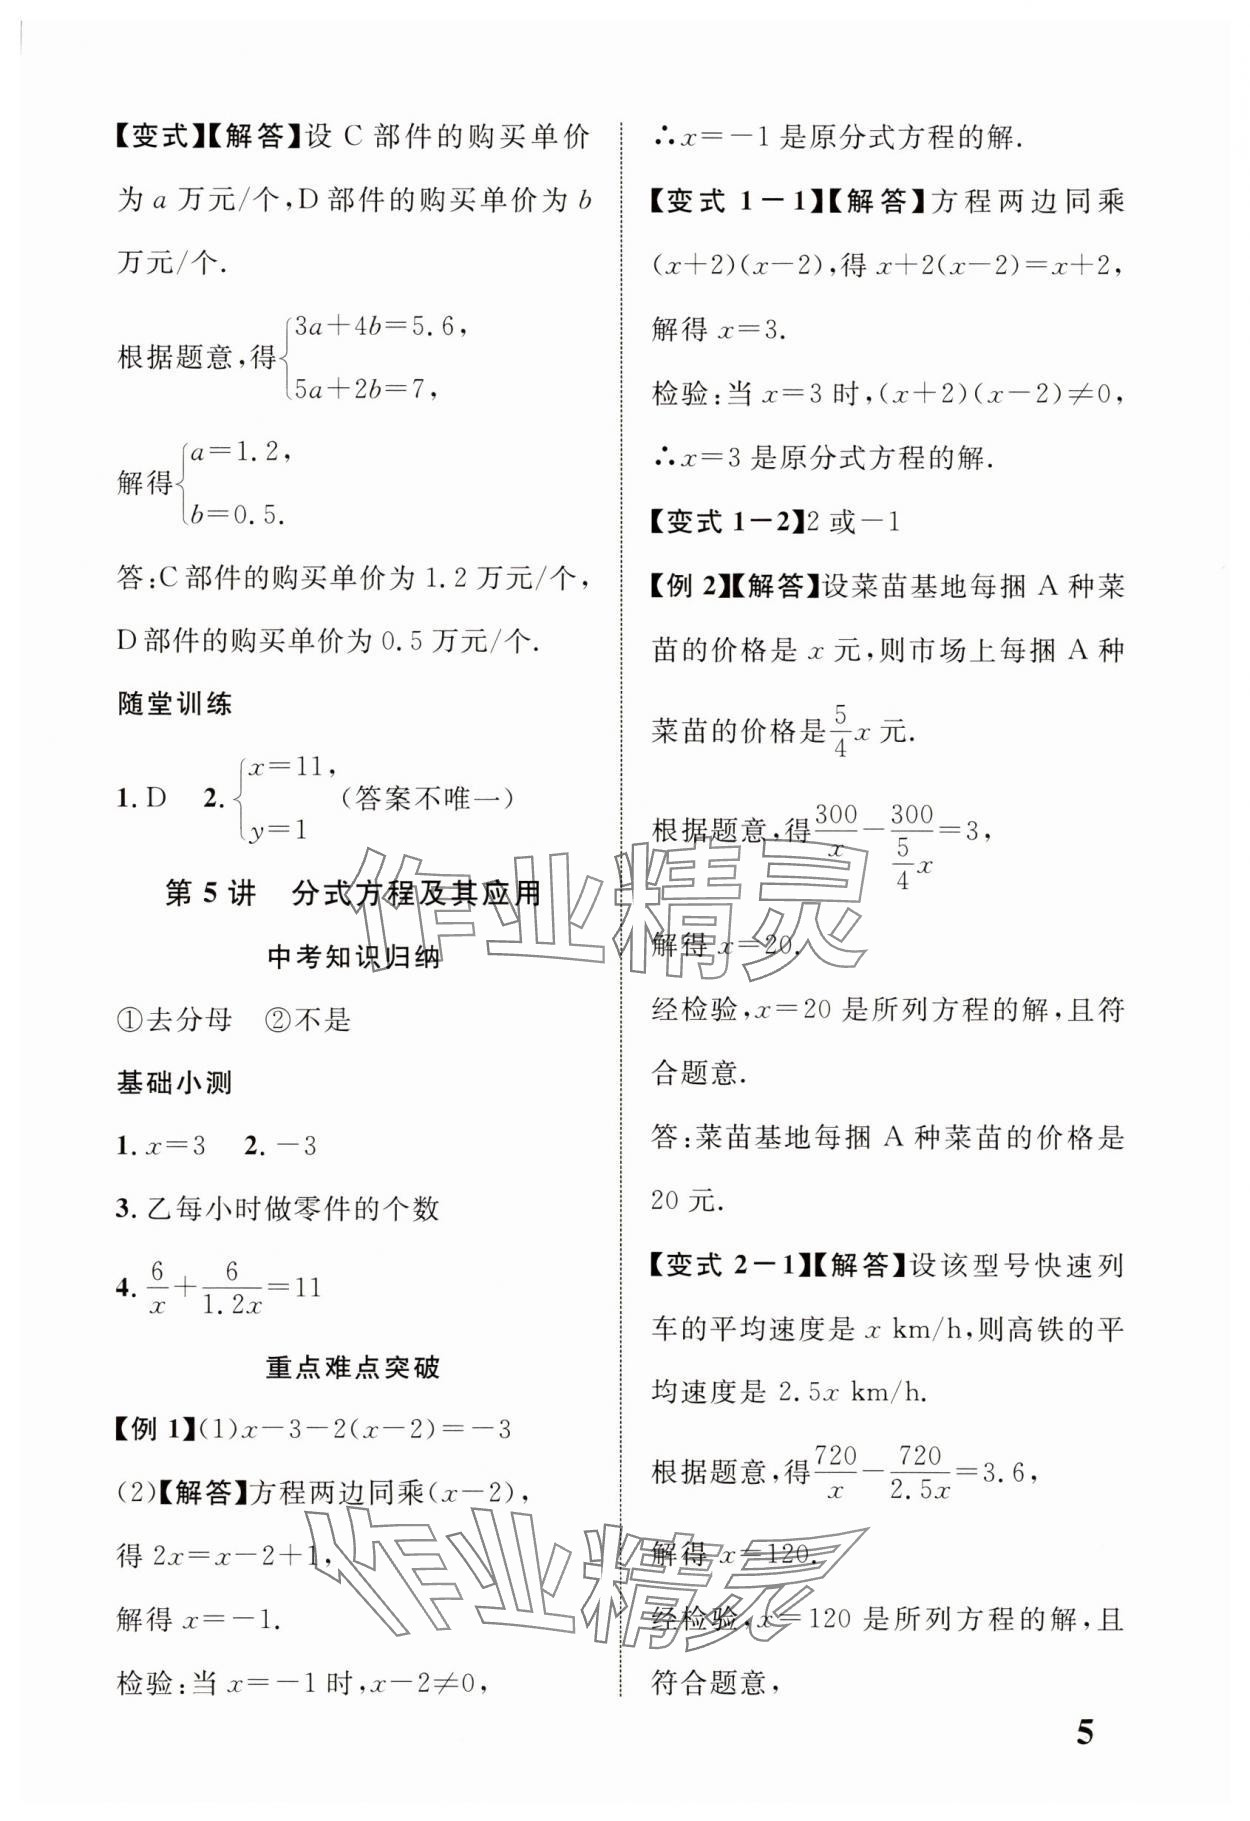 【变式】【解答】设 C 部件的购买单价
为 a 万元/个,D 部件的购买单价为 b
万元/个.
根据题意,得{3a+4b=5.6,
5a+2b=7,
解得{a=1.2,
b=0.5.
答:C 部件的购买单价为 1.2 万元/个,
D 部件的购买单价为 0.5 万元/个.
随堂训练
1. D 2. {x=11,
y=1 (答案不唯一)
第 5 讲 分式方程及其应用
中考知识归纳
①去分母 ②不是
基础小测
1. x=3 2. -3
3. 乙每小时做零件的个数
4. 6/x+6/1.2x=11
重点难点突破
【例 1】(1)x-3-2(x-2)=-3
(2)【解答】方程两边同乘(x-2),
得 2x=x-2+1,
解得 x=-1.
检验:当 x=-1 时,x-2≠0,
∴x=-1 是原分式方程的解.
【变式 1-1】【解答】方程两边同乘
(x+2)(x-2),得 x+2(x-2)=x+2,
解得 x=3.
检验:当 x=3 时,(x+2)(x-2)≠0,
∴x=3 是原分式方程的解.
【变式 1-2】2 或-1
【例 2】【解答】设菜苗基地每捆 A 种菜
苗的价格是 x 元,则市场上每捆 A 种
菜苗的价格是5/4x 元.
根据题意,得300/x-300/(5/4x)=3,
解得 x=20.
经检验,x=20 是所列方程的解,且符
合题意.
答:菜苗基地每捆 A 种菜苗的价格是
20 元.
【变式 2-1】【解答】设该型号快速列
车的平均速度是 x km/h,则高铁的平
均速度是 2.5x km/h.
根据题意,得720/x-720/2.5x=3.6,
解得 x=120.
经检验,x=120 是所列方程的解,且
符合题意,
5
作业精灵
作业精灵